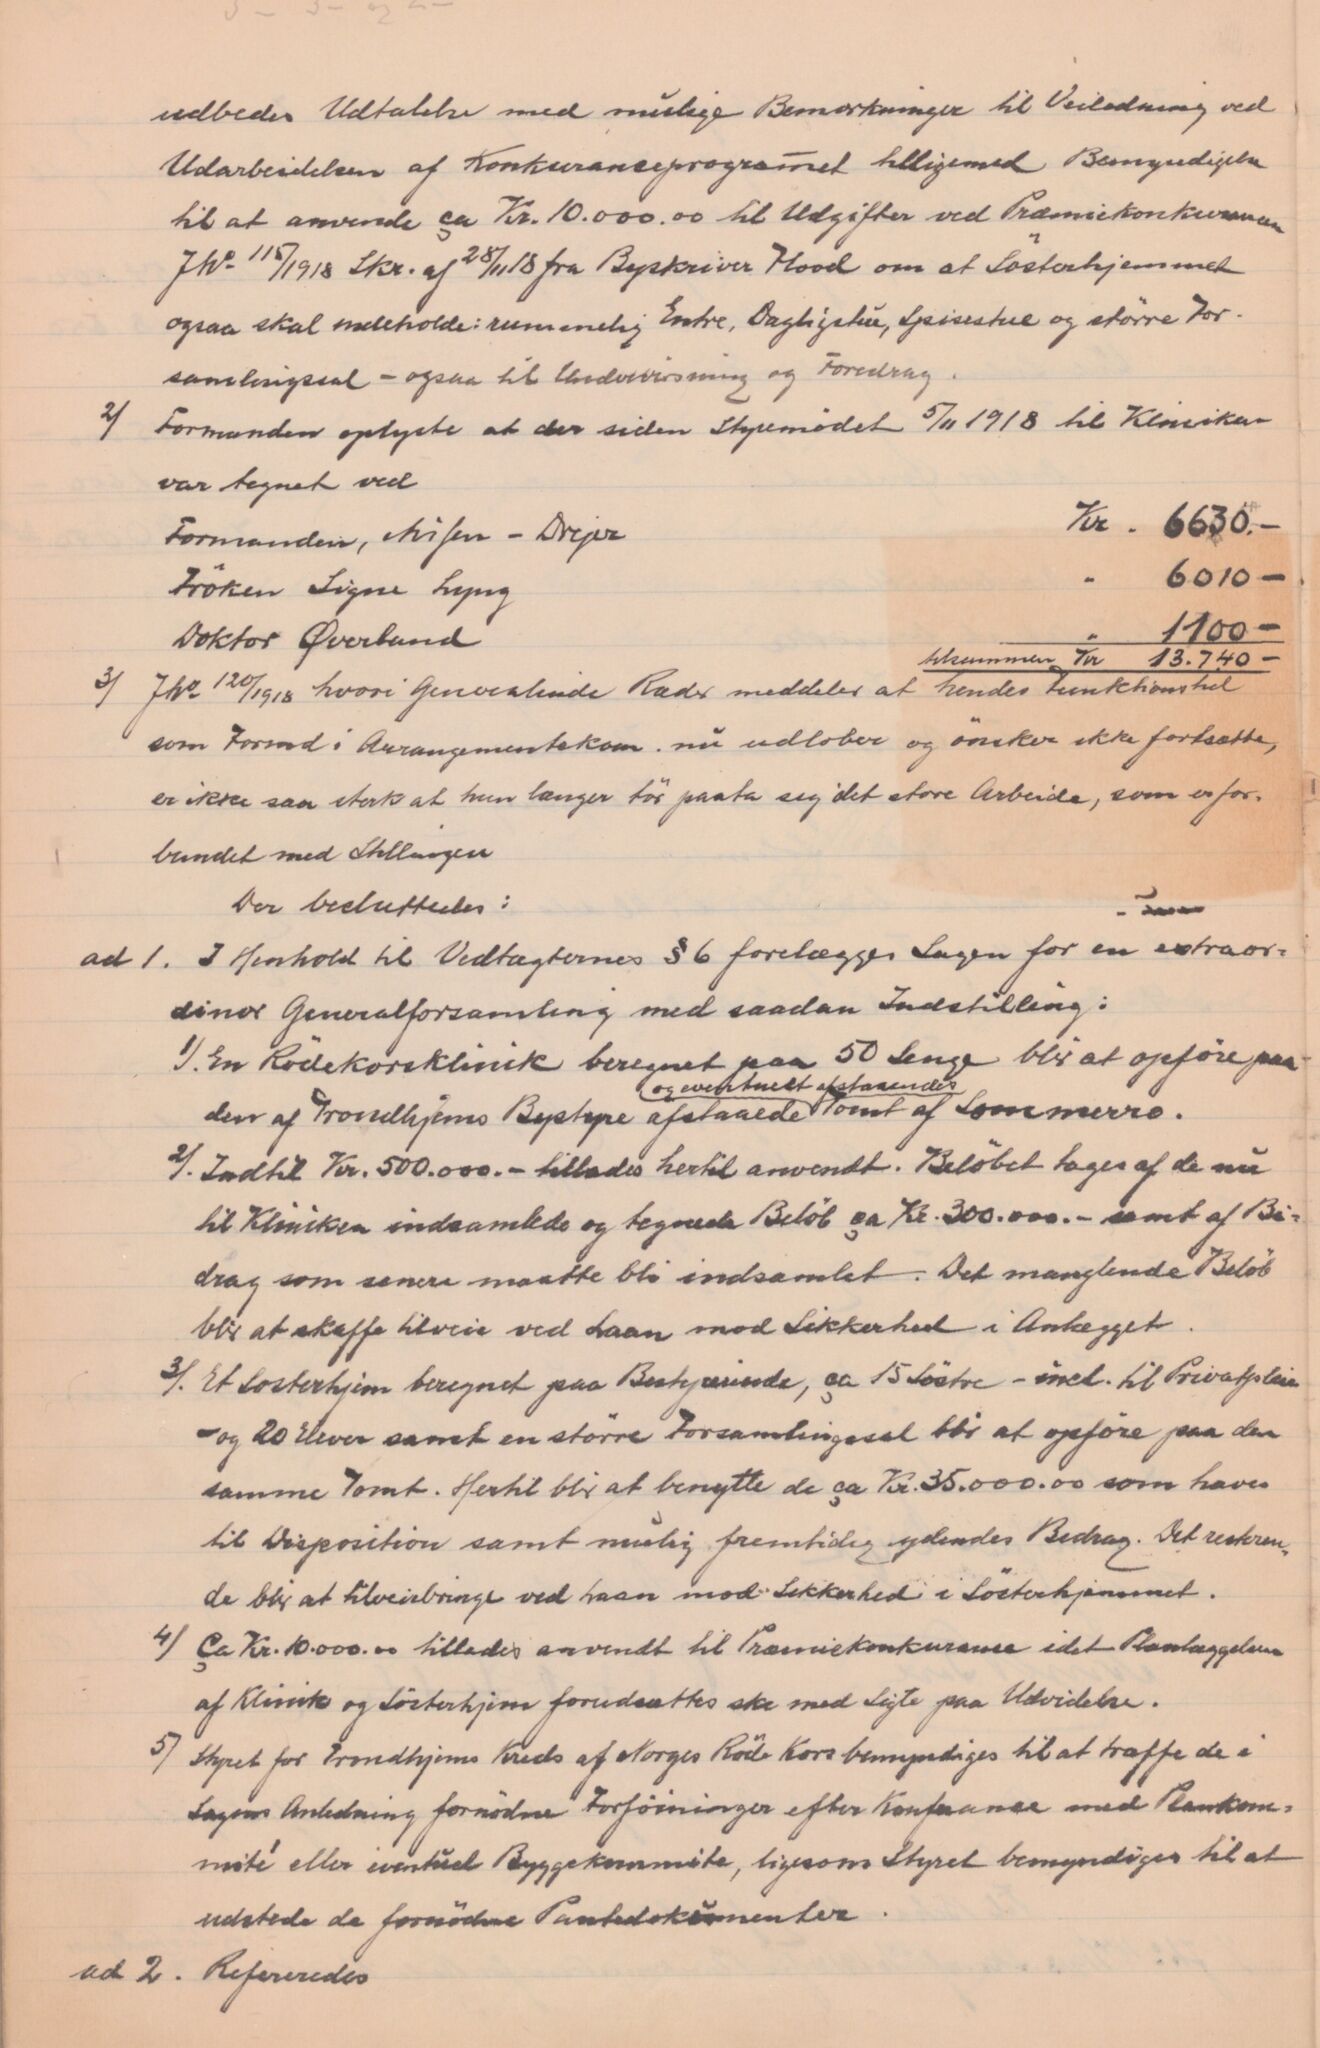 udbedes Udtalelse med mulige Bemerkninger til Veiledning ved
Udarbeidelsen af Konkuranceprogram̄et tilligemed Bemyndigelse
til at anvende ca Kr. 10.000.00 til Udgifter ved Præmiekonkurransen
JNo 115/1918 Skr. af 28/11 18 fra Byskriver Flood om at Sösterhjemmet
ogsaa skal indeholde: rummelig Entre, Dagligstue, Spisestue og större For-
samlingssal – ogsaa til Undervisning og Foredrag.
2/ Formanden oplyste at der siden Styremödet 5/11 1918 til Kliniken
var tegnet ved
Formanden, Nissen – Drejer Kr. 6630.–
Fröken Signe Lyng " 6010 –
Doktor Øverland " 1100 –
tilsammen Kr 13.740 –
3/ JNo 120/1918 hvori Generalinde Rader meddeler at hendes Funktionstid
som Formd i Arrangementskom. nu udlober og önsker ikke fortsætte,
er ikke saa sterk at hun længer tör paata sig det store Arbeide, som er for-
bundet med Stillingen
Der besluttedes:
ad 1. I Henhold til Vedtægternes § 6 forelægges Sagen for en extraor-
dinær Generalforsamling med saadan Indstilling:
1/. En Rödekorsklinik beregnet paa 50 Senge blir at opföre paa
og eventuelt afstaaendes
den af Trondhjems Bystyre afstaaede Tomt af Sommerro.
2/. Indtil Kr. 500.000.– tillades hertil anvendt. Belöbet tages af de nu
til Kliniken indsamlede og tegnede Belöb ca Kr. 300.000.– samt af Bi-
drag som senere maatte bli indsamlet. Det manglende Belöb
blir at skaffe tilveie ved Laan mod Sikkerhed i Anlægget.
3/. Et Sosterhjem beregnet paa Bestyrerinde, ca 15 Söstre – incl. til Privatpleie
– og 20 Elever samt en större Forsamlingssal blir at opföre paa den
samme Tomt. Hertil blir at benytte de ca Kr. 35.000.00 som haves
til Disposition samt mulig fremtidig ydendes Bedrag. Det resteren-
de blir at tilveiebringe ved Laan mod Sikkerhed i Sösterhjemmet.
4/ Ca Kr. 10.000.00 tillades anvendt til Præmiekonkurance idet Planlæggelsen
af Klinik og Sösterhjem forudsættes ske med Sigte paa Udvidelse.
5/ Styret for Trondhjems Kreds af Norges Röde Kors bemyndiges til at træffe de i
Sagens Anledning fornödne Forföininger efter Konferance med Plankom-
mité eller eventuel Byggekommite, ligesom Styret bemyndiges til at
udstede de fornödne Pantedokumenter.
ad 2. Refereredes